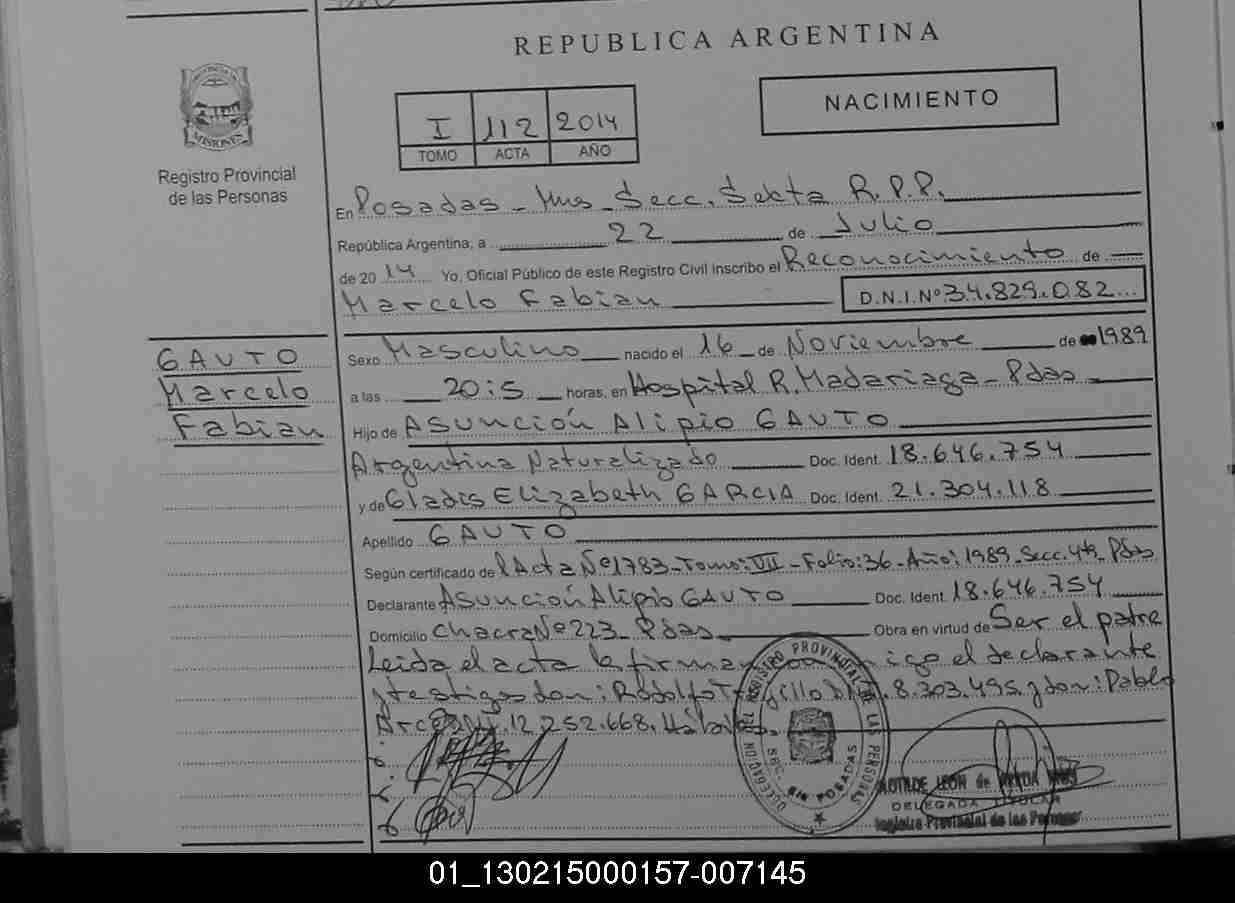 REPUBLICA ARGENTINA
PROVINCIA DE
MISIONES
Registro Provincial
de las Personas
I 112 2014
TOMO ACTA AÑO
NACIMIENTO
En Posadas - Mns - Secc. Sexta R.P.P.
República Argentina, a 22 de Julio
de 2014 Yo, Oficial Público de este Registro Civil inscribo el Reconocimiento de
Marcelo Fabian D.N.I. Nº 34.829.082
GAUTO
Marcelo
Fabian
Sexo Masculino nacido el 16 de Noviembre de 1989
a las 20:5 horas, en Hospital R. Madariaga - Pdas
Hijo de Asunción Alipio GAUTO
Argentina Naturalizado Doc. Ident. 18.646.754
y de Gladis Elizabeth GARCIA Doc. Ident. 21.304.118
Apellido GAUTO
Según certificado de l Acta Nº 1783 - Tomo: VII - Folio: 36 - Año: 1989 - Secc. 4ta Pdas
Declarante Asunción Alipio GAUTO Doc. Ident. 18.646.754
Domicilio Chacra Nº 223 - Pdas - Obra en virtud de Ser el padre
Leida el acta la firman igo el declarante
y testigos don: Rodolfo 8.303.495 y don: Pablo
Arce 12.252.668. Hábiles.
DELEGACION DEL REGISTRO PROVINCIAL DE LAS PERSONAS
SEC. 6ta POSADAS
LEON de
DELEGADA TITULAR
Registro Provincial de las Personas
01_130215000157-007145